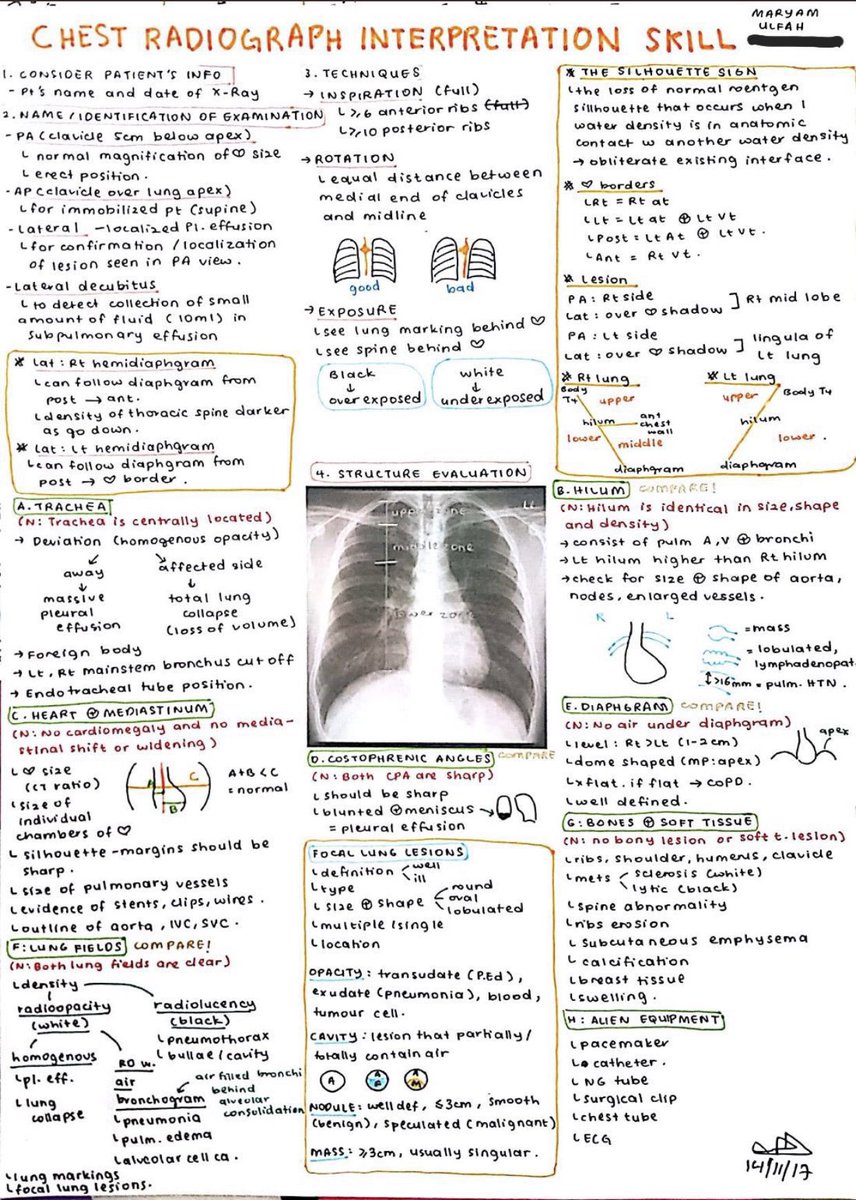 MARYAM
ULFAH
CHEST RADIOGRAPH INTERPRETATION SKILL
1. CONSIDER PATIENT'S INFO
- Pt's name and date of X-Ray
2. NAME/IDENTIFICATION OF EXAMINATION
- PA (clavicle 5cm below apex)
normal magnification of ♡ size
erect position.
- AP (clavicle over lung apex)
for immobilized pt (supine)
- Lateral - localized Pl. effusion
for confirmation / localization
of lesion seen in PA view.
- Lateral decubitus
to detect collection of small
amount of fluid (10ml) in
subpulmonary effusion
* Lat: Rt hemidiaphgram
can follow diaphgram from
post → ant.
density of thoracic spine darker
as go down.
* Lat: Lt hemidiaphgram
can follow diaphgram from
post → ♡ border.
3. TECHNIQUES
→ INSPIRATION (full)
≥6 anterior ribs (full)
≥10 posterior ribs
→ ROTATION
equal distance between
medial end of clavicles
and midline
good bad
→ EXPOSURE
see lung marking behind ♡
see spine behind ♡
Black
↓
overexposed
white
↓
underexposed
* THE SILHOUETTE SIGN
the loss of normal roentgen
silhouette that occurs when 1
water density is in anatomic
contact w another water density
→ obliterate existing interface.
* ♡ borders
Rt = Rt at
Lt = Lt at ⊕ Lt Vt
Post = Lt At ⊕ Lt Vt.
Ant = Rt Vt.
* Lesion
PA: Rt side
Lat: over ♡ shadow ] Rt mid lobe
PA: Lt side
Lat: over ♡ shadow ] lingula of
Lt lung
* Rt lung
Body
T4
upper
hilum
ant
chest
wall
lower
middle
diaphgram
* Lt lung
upper
Body T4
hilum
lower.
diaphgram
4. STRUCTURE EVALUATION
upper zone
middle zone
lower zone
A. TRACHEA
(N: Trachea is centrally located)
→ Deviation (homogenous opacity)
away
↓
massive
pleural
effusion
affected side
↓
total lung
collapse
(loss of volume)
→ Foreign body
→ Lt, Rt mainstem bronchus cut off
→ Endotracheal tube position.
B. HILUM COMPARE!
(N: Hilum is identical in size, shape
and density)
→ consist of pulm A, V ⊕ bronchi
→ Lt hilum higher than Rt hilum
→ check for size ⊕ shape of aorta,
nodes, enlarged vessels.
R L
= mass
= lobulated,
lymphadenopat
>16mm = pulm. HTN.
C. HEART ⊕ MEDIASTINUM
(N: No cardiomegaly and no media-
stinal shift or widening)
♡ size
(CT ratio)
A
B
C
A+B < C
= normal
size of
individual
chambers of ♡
silhouette - margins should be
sharp.
size of pulmonary vessels
evidence of stents, clips, wires.
outline of aorta, IVC, SVC.
D. COSTOPHRENIC ANGLES COMPARE
(N: Both CPA are sharp)
should be sharp
blunted ⊕ meniscus →
= pleural effusion
E. DIAPHGRAM COMPARE!
(N: No air under diaphgram)
level: Rt > Lt (1-2cm)
dome shaped (mp: apex)
apex
xflat. if flat → COPD.
well defined.
F: LUNG FIELDS COMPARE!
(N: Both lung fields are clear)
density
radioopacity
(white)
radiolucency
(black)
pneumothorax
bullae / cavity
homogenous
pl. eff.
lung
collapse
RO w.
air
bronchogram
pneumonia
pulm. edema
alveolar cell ca.
air filled bronchi
behind
alveolar
consolidation
lung markings
focal lung lesions.
FOCAL LUNG LESIONS
definition well
ill
type
size ⊕ shape round
oval
lobulated
multiple / single
location
OPACITY: transudate (P.Ed),
exudate (pneumonia), blood,
tumour cell.
CAVITY: lesion that partially/
totally contain air
A
A
F
A
M
NODULE: well def, ≤3cm, smooth
(benign), speculated (malignant)
MASS: ≥3cm, usually singular.
G: BONES ⊕ SOFT TISSUE
(N: no bony lesion or soft t. lesion)
ribs, shoulder, humerus, clavicle
mets sclerosis (white)
lytic (black)
spine abnormality
ribs erosion
subcutaneous emphysema
calcification
breast tissue
swelling.
H: ALIEN EQUIPMENT
pacemaker
catheter.
NG tube
surgical clip
chest tube
ECG
14/11/17